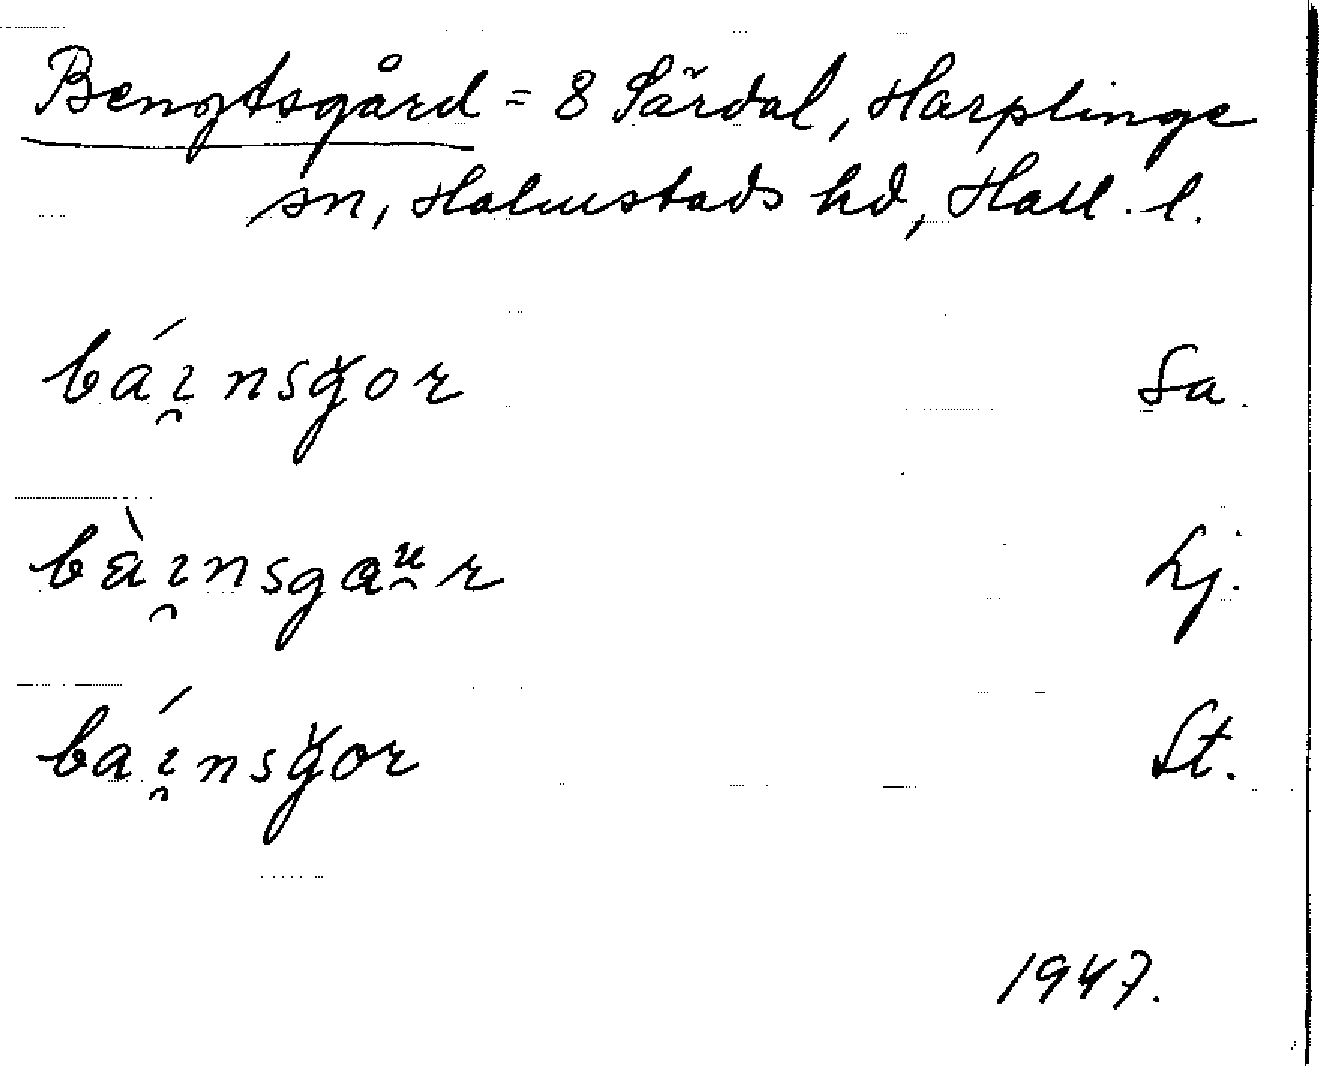 Bengtsgård = 8 Särdal, Harplinge
sn, Halmstads hd, Hall. l.
báı̯nsǥor Sa.
bàı̯nsgaᵘ̯r Lj.
baı̯́nsǥor St.
1947.